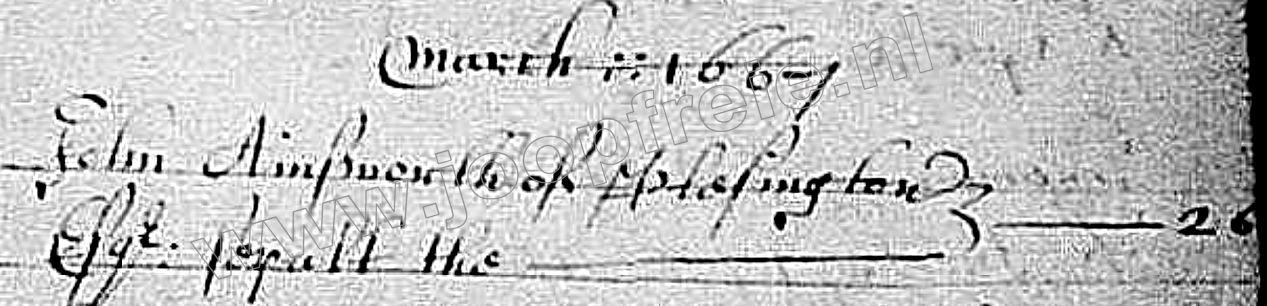 March :: 1667
John Ainsworth of Plesington
Esqr. sepult the 26
www.joopfreie.nl